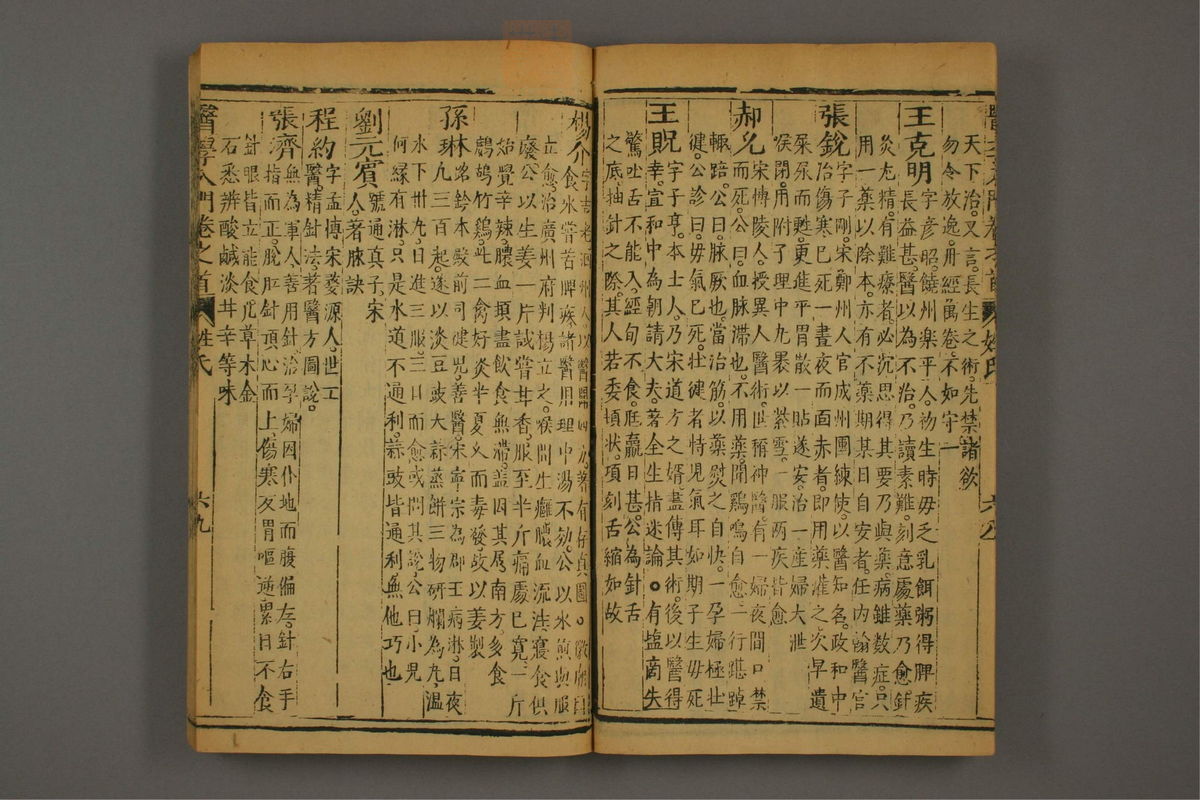 天下治。又言。長生之術。先禁諸欲
勿令放逸。用經萬卷。不如守一
王克明
字彥昭。饒州樂平人。初生時毋乏乳餌粥得脾疾
長益甚。醫以為不治。乃讀素難。刻意處藥乃愈針
灸尤精。有難療者必沉思得其要乃與藥。病雖数症。只
用一藥以除本。亦有不藥期某日自安者。任内翰醫官
張銳
字子剛。宋鄭州人官成州團練使。以醫知名。政和中
治傷寒已死一晝夜而面赤者。即用藥灌之。次早遺
屎尿而甦。更進平胃散一貼遂安。治一産婦大泄
喉閉。用附子理中丸裹以紫雪。一服两疾皆愈
郝允
宋博陵人。授異人醫術。世稱神醫。有一婦夜間口禁
而死。公曰。血脉滯也。不用藥。聞鷄鳴自愈。一行踸踔
輙踣。公曰。脉厥也。當治筋。以藥熨之自快。一孕婦極壮
健。公診曰。毋氣已死。壮健者恃児氣耳如期子生毋死
王貺
字子亨。本士人。乃宋道方之婿。盡傳其術。後以醫得
幸。宜和中為朝請大夫。著全生指迷論。有塩商失
驚吐舌不能入。經旬不食。尫羸日甚。公為針舌
之底。抽針之際。其人若委頓状。頃刻舌縮如故
楊介
立愈。治廣州府判楊立之。喉間生癰膿血流注寢食俱
廢。公以生姜一片試嘗甘香。服至半斤痛處已寬。一斤
始覺辛辣。膿血頓盡飲食無滯。盖因其居南方多食
鷓鴣竹鷄。此二禽好炎半夏。久而毒發。故以姜製
孫琳
路鈐本殿前司健児善醫。宋寧宗為郡王。病淋。日夜
凡三百起。遂以淡豆豉大蒜蒸餅三物研爛為丸温
水下卅丸。日進三服。三日而愈或問其說。公曰小児
何縁有淋。只是水道不通利。蒜豉皆通利無他巧也
劉元賓
號通真子。宋
人。著脉訣
程約
字孟博宋婺源人。世工
醫。精針法。著醫方圖說。
張濟
無為軍人善用針。治孕婦因仆地而腹偏左。針右手
指而正。脫肛針頂心而上。傷寒反胃嘔逆累日不食
針眼皆立能食。凢草木金
石悉辨酸鹹淡甘辛等味
醫學入門卷之首 姓氏 六九